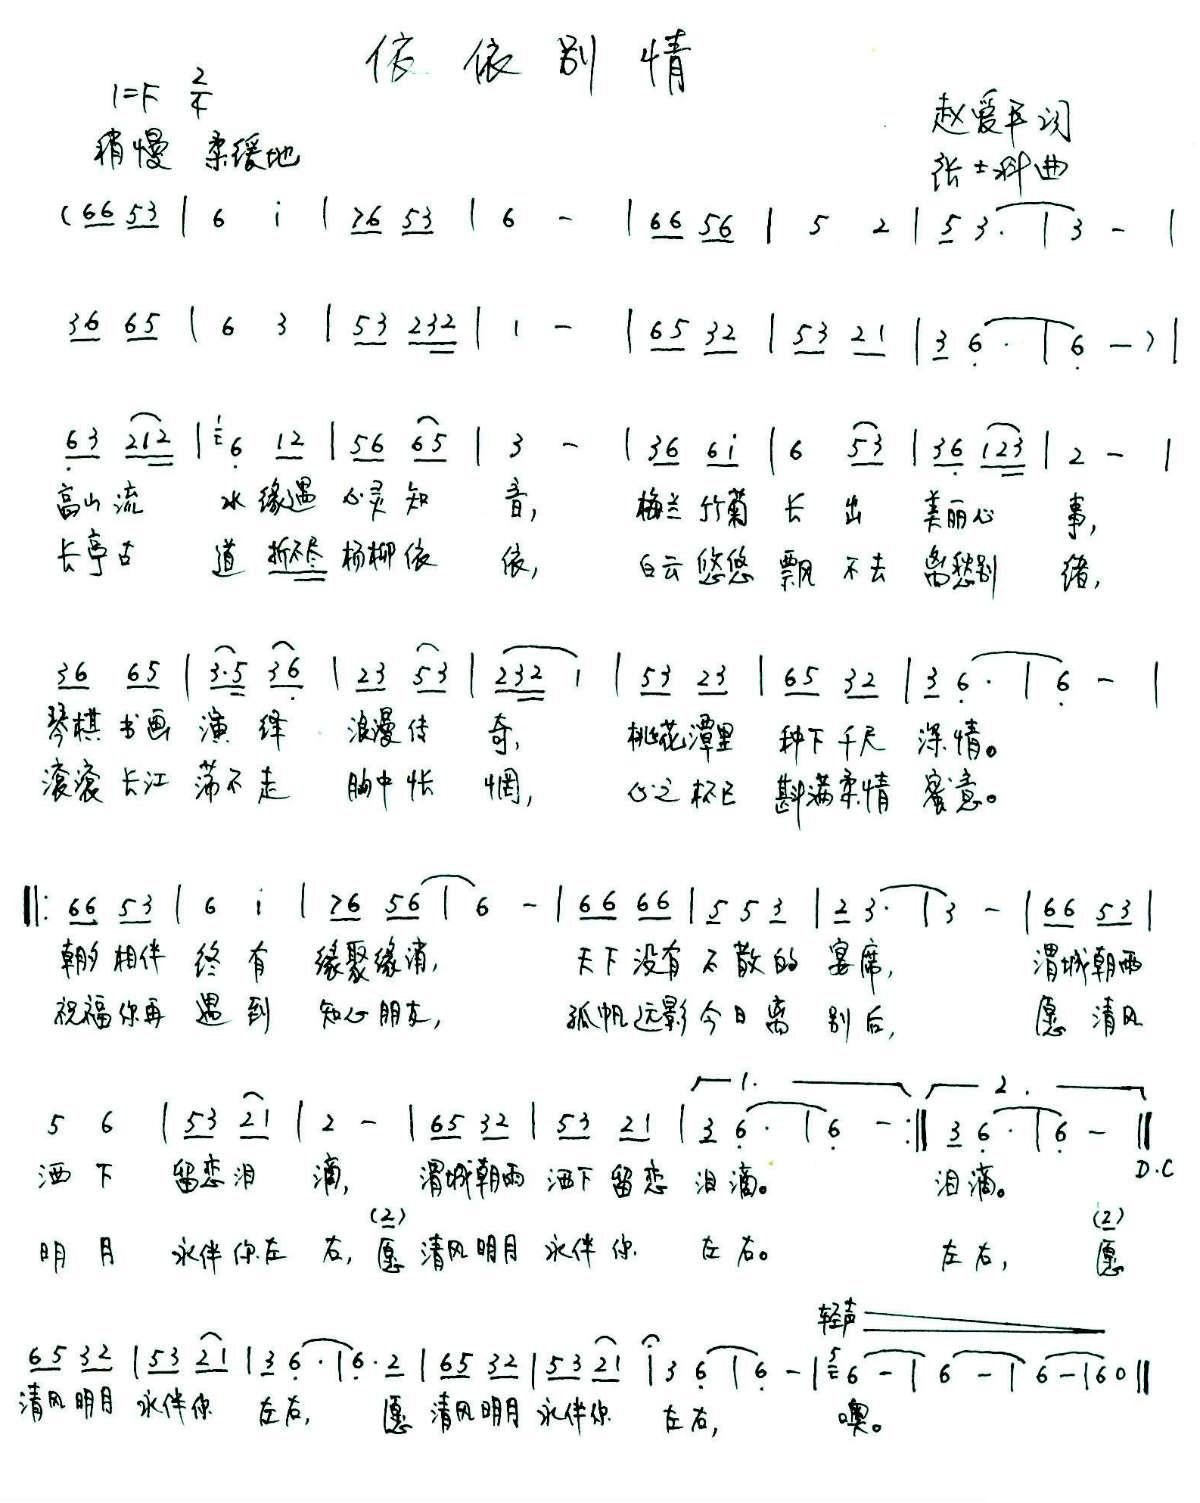 依依别情
1=F 2/4
稍慢 柔缓地
赵爱平词
张士科曲
(66 53 | 6 i | 76 53 | 6 - | 66 56 | 5 2 | 53. | 3 - |
36 65 | 6 3 | 53 232 | 1 - | 65 32 | 53 21 | 36. | 6 -) |
63 212 | 6 12 | 56 65 | 3 - | 36 6i | 6 53 | 36 123 | 2 - |
高山流 水缘遇 心灵知 音, 梅兰竹菊 长出 美丽心 事,
长亭古 道折不尽 杨柳依 依, 白云悠悠 飘不去 离愁别 绪,
36 65 | 3·5 36 | 23 53 | 232 1 | 53 23 | 65 32 | 36. | 6 - |
琴棋书画 演绎 浪漫传 奇, 桃花潭里 种下千尺 深情。
滚滚长江 荡不走 胸中怅 惘, 心之杯已 斟满柔情 蜜意。
‖: 66 53 | 6 i | 76 56 | 6 - | 66 66 | 5 5 3 | 23. | 3 - | 66 53 |
朝夕相伴 终有 缘聚缘消, 天下没有不散的 宴席, 渭城朝雨
祝福你再 遇到 知心朋友, 孤帆远影今日离 别后, 愿清风
1. 2.
5 6 | 53 21 | 2 - | 65 32 | 53 21 | 36. | 6 - :‖ 36. | 6 - ‖
D.C
洒下 留恋泪 滴, 渭城朝雨 洒下留恋 泪滴。 泪滴。
(2) (2)
明月 永伴你左 右, 愿清风明月 永伴你 左右。 左右, 愿
轻声
65 32 | 53 21 | 36. | 6. 2 | 65 32 | 53 21 | 3 6 | 6 - | 5 6 - | 6 - | 6 - | 60 ‖
清风明月 永伴你 左右, 愿清风明月 永伴你 左右, 噢。